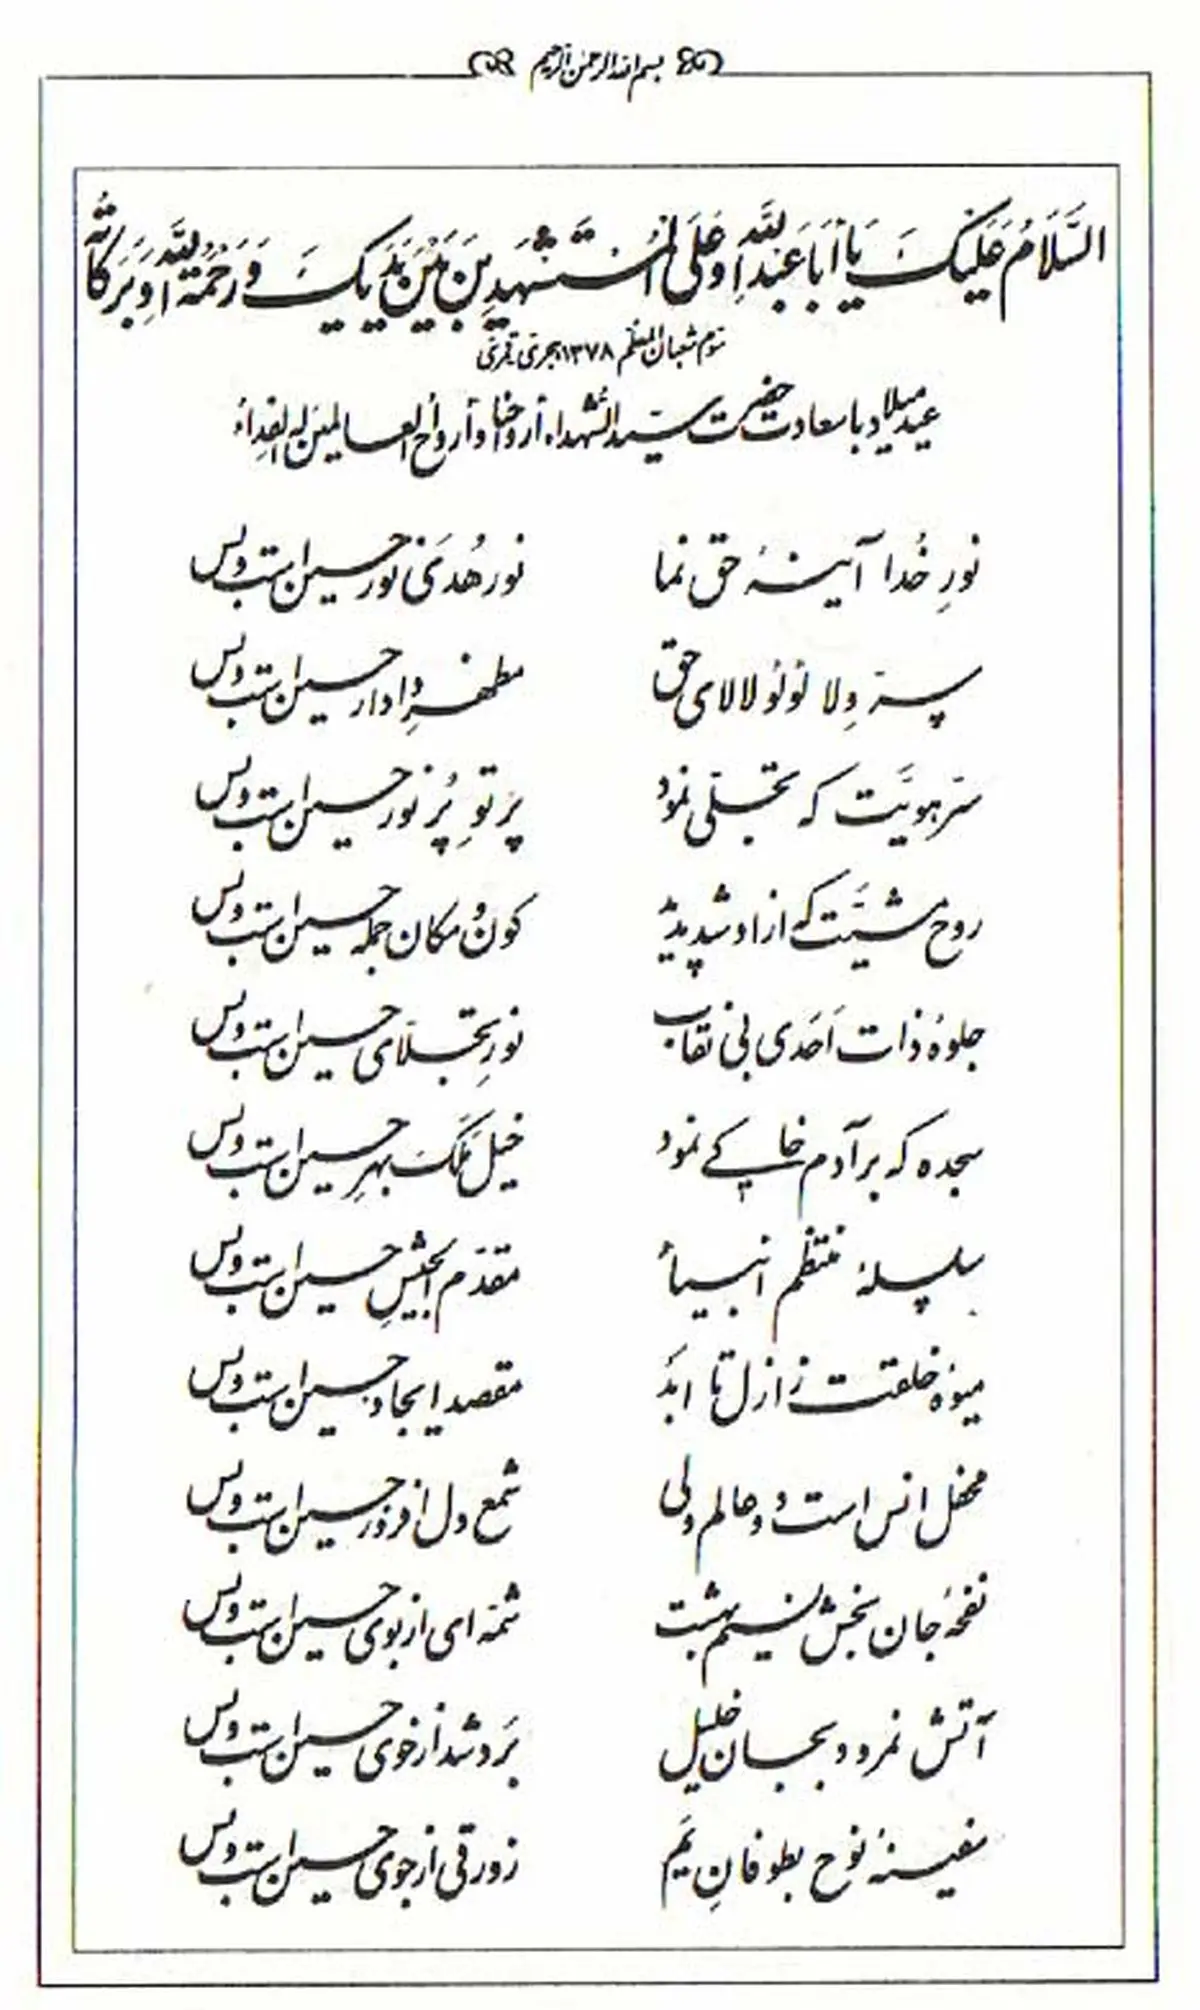 بسم الله الرحمن الرحیم
السَّلَامُ عَلَیْکَ یَا أَبَا عَبْدِ اللهِ وَ عَلَی الْمُسْتَشْهَدِینَ بَیْنَ یَدَیْکَ وَ رَحْمَةُ اللهِ وَ بَرَکَاتُهُ
سوم شعبان المعظم ۱۳۷۸ هجری قمری
عید میلاد با سعادت حضرت سیّد الشهداء أرواحنا و أرواح العالمین له الفداء
نورِ خُدا آینهٔ حق نما نور هُدیٰ نور حسین است و بس
سرّ وِلا لؤلؤ لالای حق مظهرِ دادار حسین است و بس
سرّ هویّت که تجلّی نمود پرتوِ پُر نور حسین است و بس
روح مشیّت که از او شد پدید کون و مکان جمله حسین است و بس
جلوهٔ ذات اَحَدی بی نقاب نورِ تجلّای حسین است و بس
سجده که بر آدم خاکی نمود خیل مَلَک بهرِ حسین است و بس
سلسلهٔ منتظم انبیاء مقدّم الجیشِ حسین است و بس
میوهٔ خلقت ز ازل تا ابد مقصد ایجاد حسین است و بس
محفل انس است دو عالم ولی شمع دل افروز حسین است و بس
نفحهٔ جان بخش نسیم بهشت شمّه ای از بوی حسین است و بس
آتش نمرود بجان خلیل بَرد شد از خوی حسین است و بس
سفینهٔ نوح بطوفانِ یَم زورقی از جوی حسین است و بس